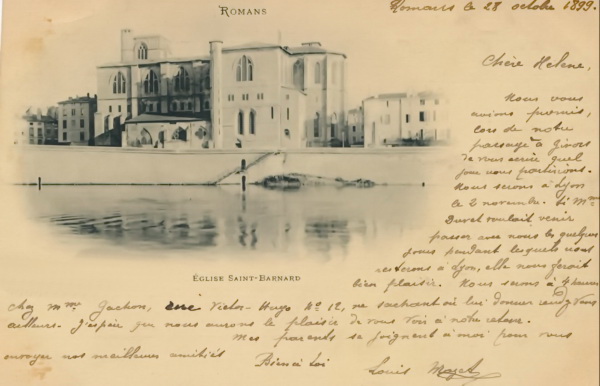 ROMANS
Romans le 28 octobre 1899.
Chère Helene,
Nous vous
avions promis,
lors de notre
passage à Givors
de vous écrire quel
jour nous partirions.
Nous serons à Lyon
le 2 novembre. Si Mme
Duret voulait venir
passer avec nous les quelques
jours pendant lesquels nous
resterons à Lyon, elle nous ferait
bien plaisir. Nous serons à 4 heures
ÉGLISE SAINT-BARNARD
chez Mme Gachon, Victor-Hugo No 12, ne sachant où lui donner rendez vous
ailleurs. J'espère que nous aurons le plaisir de vous voir à notre retour.
Mes parents se joignent à moi pour vous
envoyer nos meilleures amitiés Bien à toi
Louis